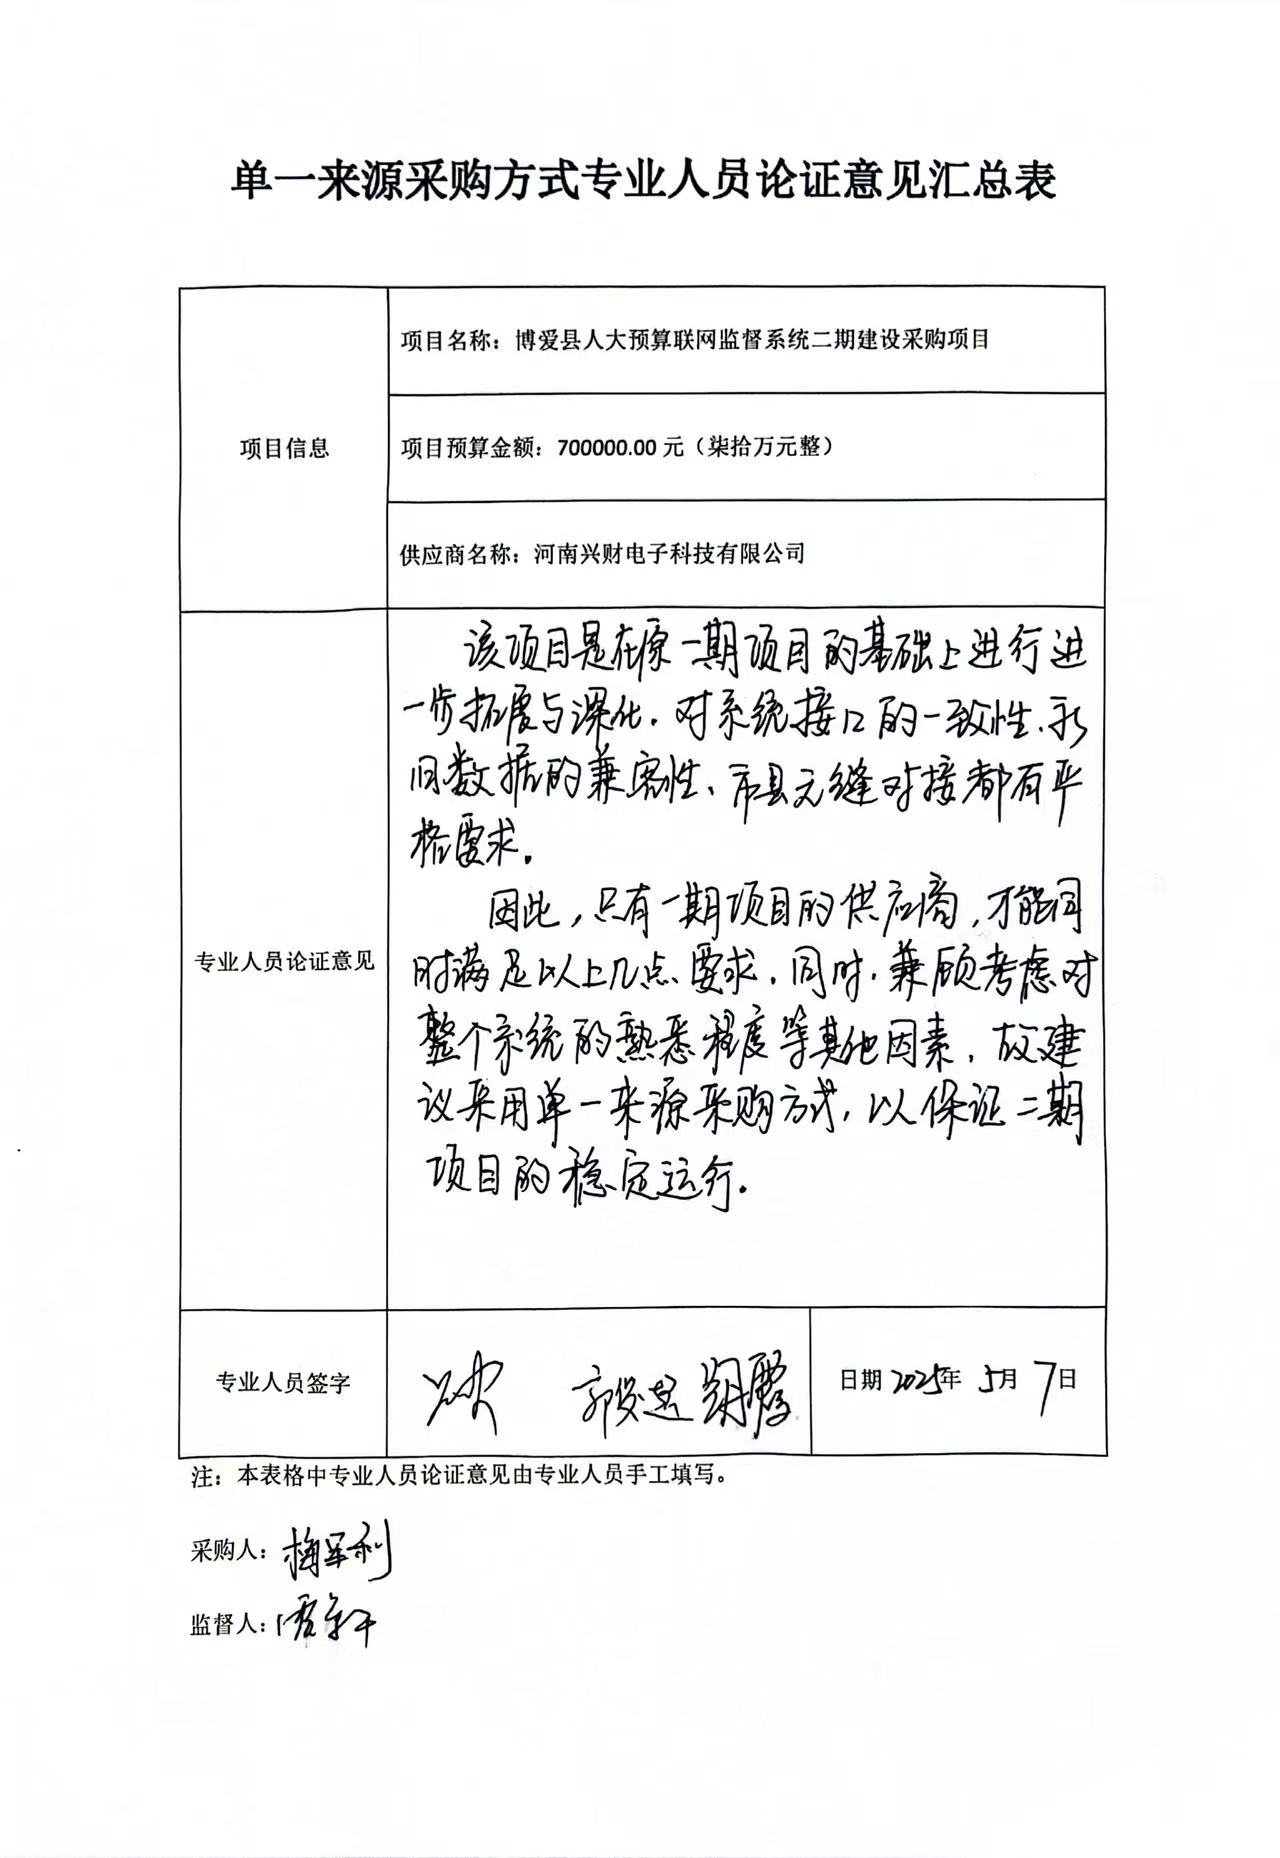 单一来源采购方式专业人员论证意见汇总表
项目信息
项目名称：博爱县人大预算联网监督系统二期建设采购项目
项目预算金额：700000.00 元（柒拾万元整）
供应商名称：河南兴财电子科技有限公司
专业人员论证意见
该项目是在原一期项目的基础上进行进
一步拓展与深化，对系统接口的一致性、
旧数据的兼容性、市县无缝对接都有严
格要求。
因此，只有一期项目的供应商，才能同
时满足以上几点要求，同时，兼顾考虑对
整个系统的熟悉程度等其他因素，故建
议采用单一来源采购方式，以保证二期
项目的稳定运行。
专业人员签字
日期 2025年 5月 7日
注：本表格中专业人员论证意见由专业人员手工填写。
采购人：
监督人：